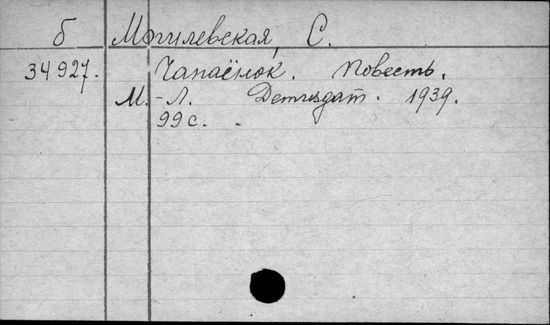 б Могилевская, С.
34927. Чапаёнок. Повесть.
М.-Л. Детиздат. 1939.
99 с.